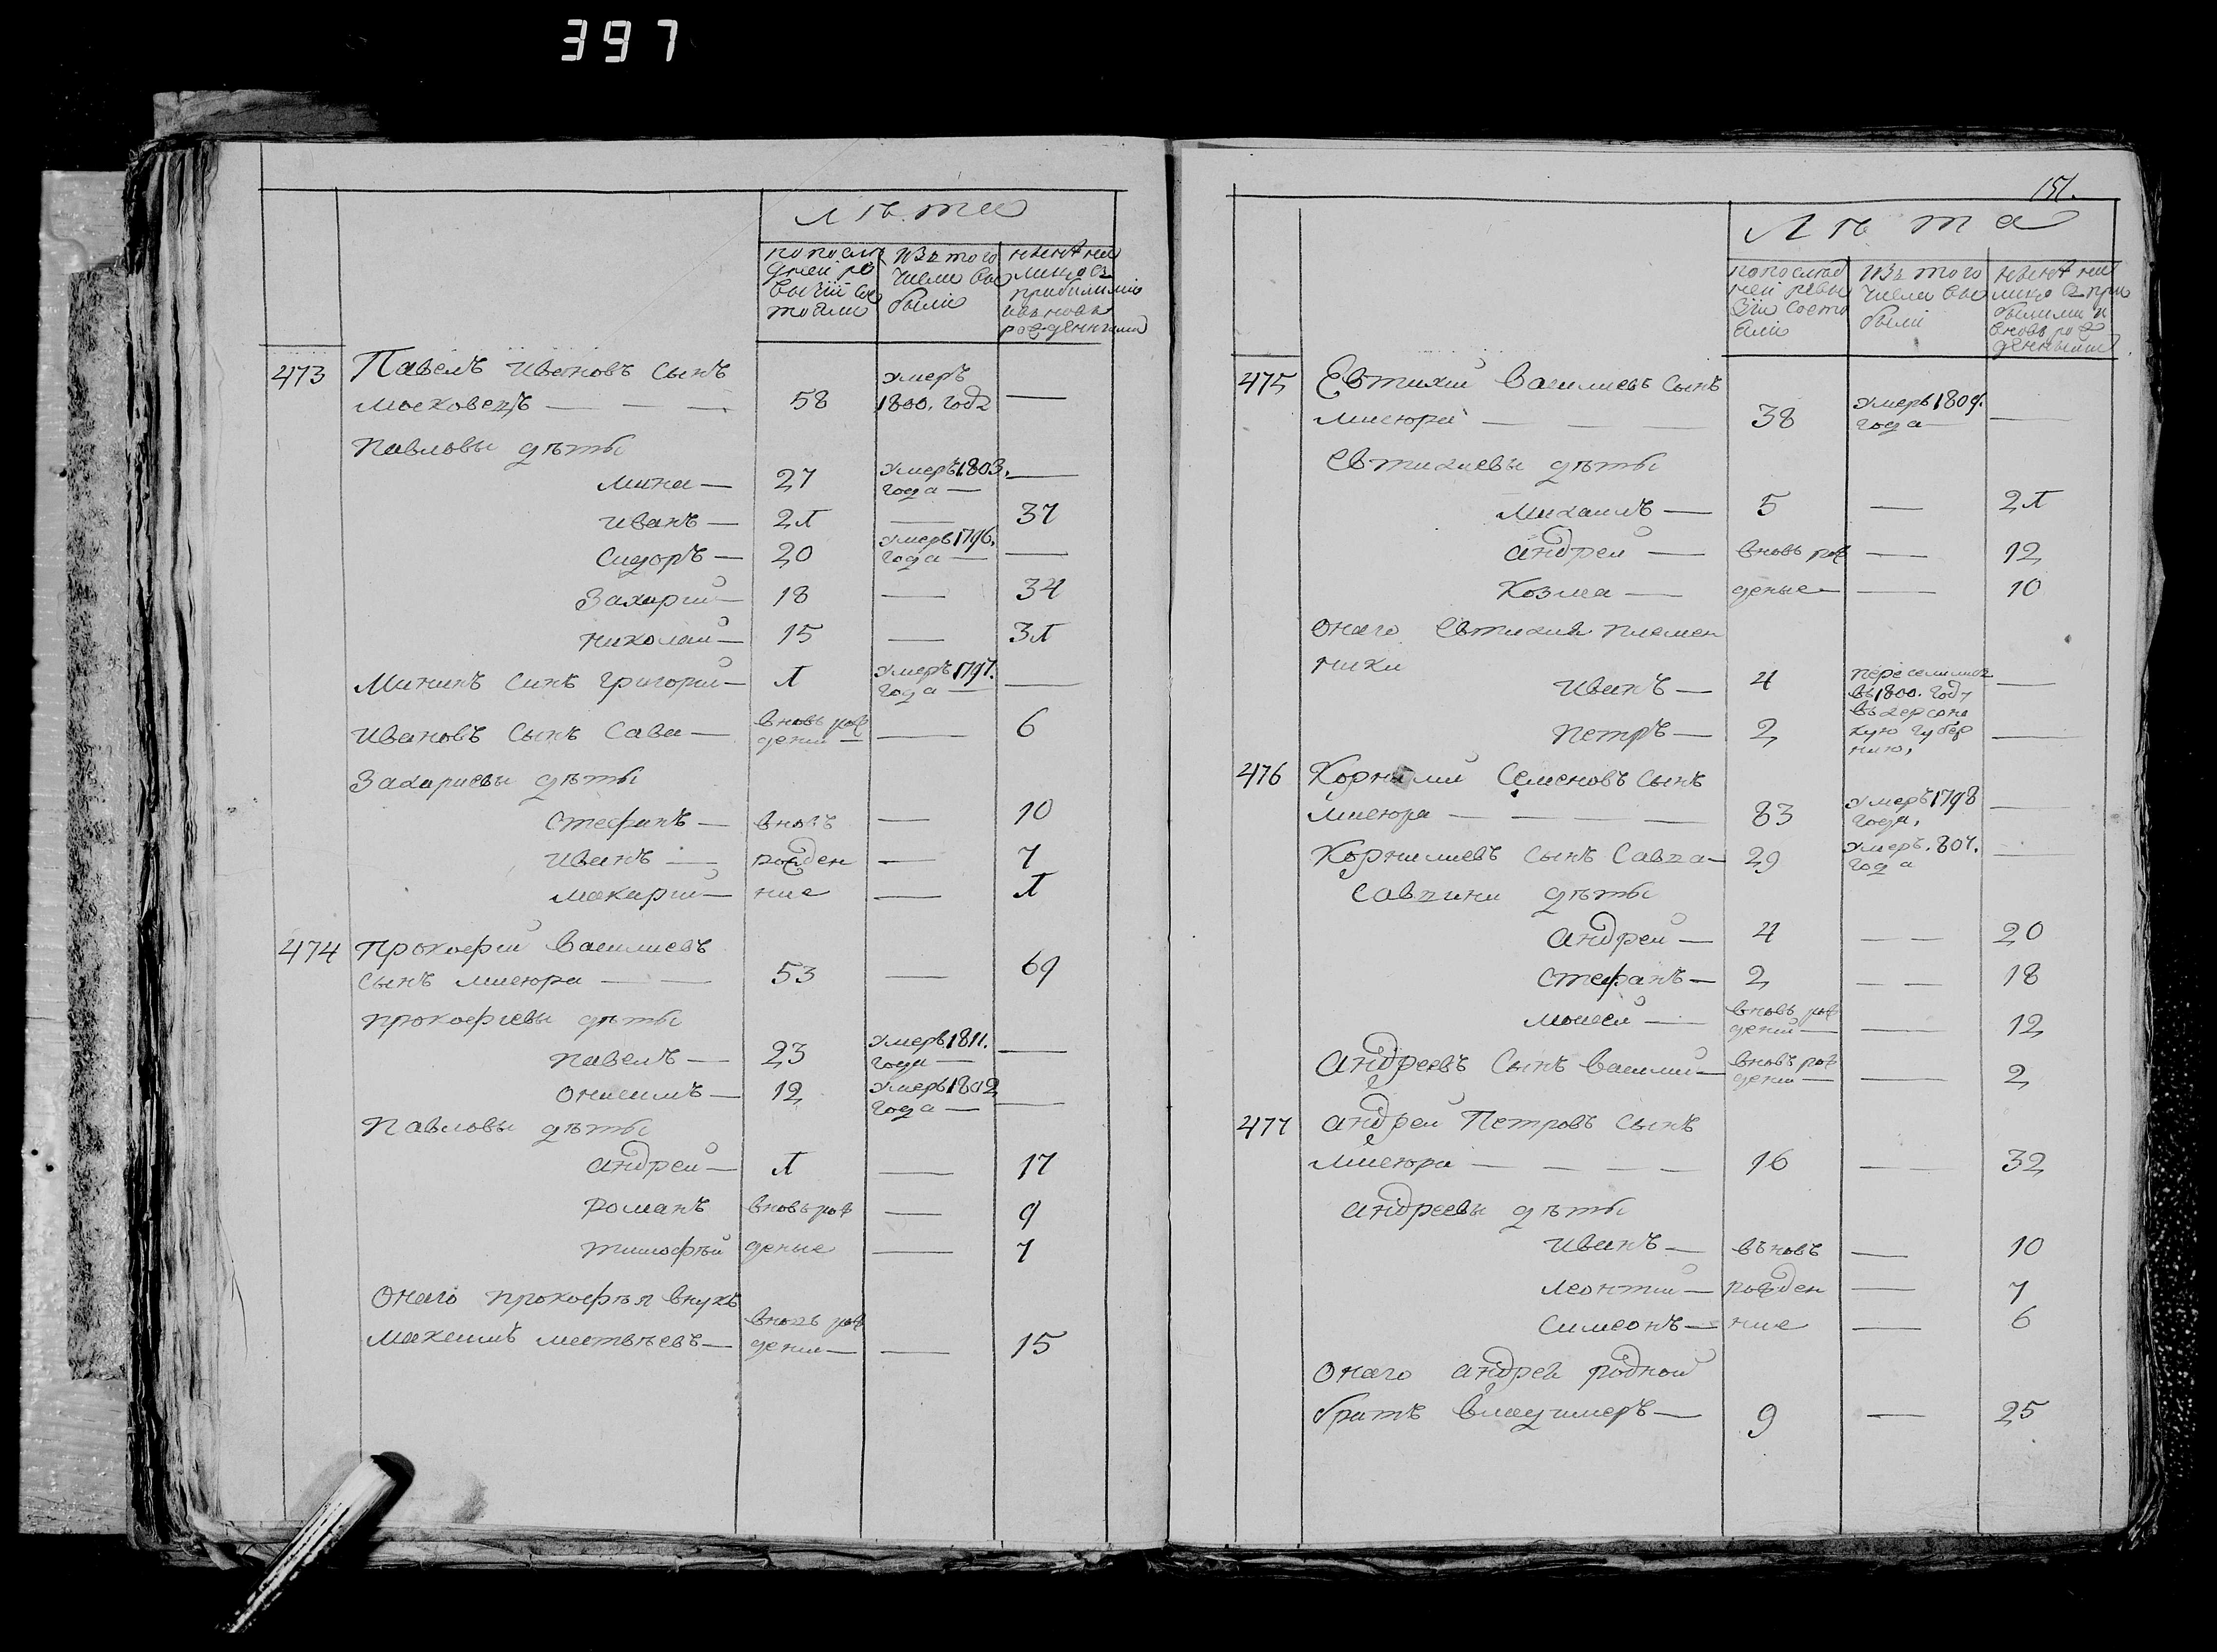 397
лѣта
по послѣ
дней ре
визіи со
стояло
изъ того
числа вы
было
нынѣ на
лицо съ
прибылыми
и вновь
рожденными
473 Павелъ Ивановъ сынъ
московецъ — — — 58 умеръ 1800. года —
Павловы дѣты
мина — 27 умеръ 1803. года — —
иванъ — 21 — 37
сидоръ — 20 умеръ 1796. года — —
Захарий — 18 — 34
николай — 15 — 31
Мининъ синъ григорий — 1 умеръ 1797. года — —
Ивановъ сынъ Сава — вновь рож дений — — 6
Захариевы дѣты
стефанъ — вновъ — 10
иванъ — рожден — 7
макарий — ние — 1
474 Прокофий Василиевъ
сынъ мисюра — — 53 — 69
прокофиевы дѣты
павелъ — 23 умеръ 1811. года — —
онисимъ — 12 умеръ 1802 года — —
Павловы дѣты
андрей — 1 — 17
романъ вновь рож — 9
тимофѣй деные — 7
Онаго прокофѣя внукъ
максимъ матвѣевъ — вновь рож дений — — 15
151.
Лѣта
по послед
ней реви
зіи состо
яли
изъ того
числа вы
были
нынѣ на
лицо съ при
былими и
вновь рож
денными
475 Евтихий Василиевъ сынъ
мисюра — — — 38 умеръ 1809. года — —
Евтихиевы дѣты
михаилъ — 5 — 21
андрей — вновь рож — 12
Козма — деные — — 10
онаго Евтихия племен
ники
иванъ — 4 переселились въ 1800. году —
петръ — 2 въ херсонс кую губер нию, —
476 Корнилий Семеновъ сынъ
мисюра — — — — 83 умеръ 1798 года, —
Корнилиевъ сынъ Савва — 29 умеръ. 807. года —
Саввини дѣты
андрей — 4 — — 20
стефанъ — 2 — — 18
мойсей — вновь рож дений — — 12
андреевъ сынъ василий — вновъ рож дений — — 2
477 андрей Петровъ сынъ
мисюра — — — — 16 — — 32
андреевы дѣты
иванъ — въновъ — 10
леонтий — рожден — 7
симеонъ — ние — 6
онаго андрея родной
братъ владимеръ — 9 — 25